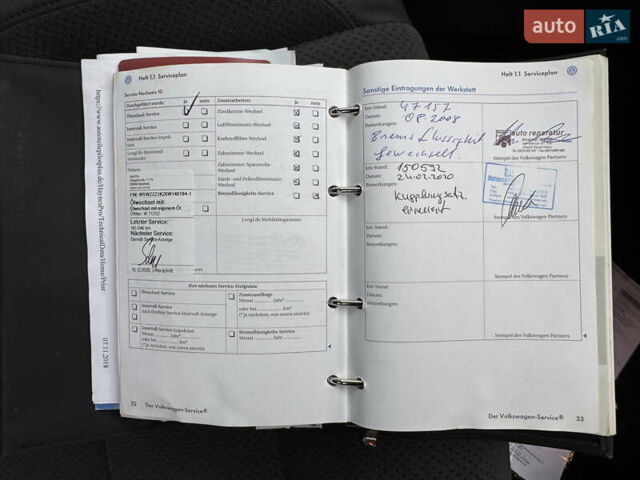 auto RIA
.com
https://www.autowelleplusplus.de/HaynesPro/TechnicalData/Home/Print
07.11.2018
Heft 1.1 Serviceplan
Service-Nachweis 10
Durchgeführt wurde: ja nein
Ölwechsel-Service
Intervall-Service
LongLife-Motorenöl
verwendet:
Datum:
Zusatzarbeiten: ja nein
Zündkerzen-Wechsel
Luftfiltereinsatz-Wechsel
Kraftstofffilter-Wechsel
Zahnriemen-Wechsel
Zahnriemen-Spannrolle-
Wechsel
Staub- und Pollenfiltereinsatz-
Wechsel
Bremsflüssigkeits-Service
LongLife Mobilitätsgarantie:
Ölwechsel mit:
Ölwechsel mit eigenem Öl
Ölfilter: W 712/52
Letzter Service:
181 046 km
Nächster Service:
Gemäß Service-Anzeige
10.12.2020, Unterschrift
Ihre nächsten Service-Ereignisse
Ölwechsel-Service
Intervall-Service
nach flexibler Service Intervall-Anzeige
Zusatzumfänge
Monat ........ Jahr* ........
oder bei ........ km*
(* je nachdem, was zuerst eintritt)
Intervall-Service
Monat ........ Jahr* ........
oder bei ........ km*
(* je nachdem, was zuerst eintritt)
Bremsflüssigkeits-Service
Monat ........ Jahr ........
32 Der Volkswagen-Service®
Heft 1.1 Serviceplan
Sonstige Eintragungen der Werkstatt
km-Stand: 47157
Datum: 08 2008
Bemerkungen:
Bremsflüssigkeit
gewechselt.
auto reparatur
Stempel des Volkswagen Partners
km-Stand: 150532
Datum: 21.02.2020
Bemerkungen:
Kupplungsatz
erneuert
Stempel des Volkswagen Partners
km-Stand:
Datum:
Bemerkungen:
Stempel des Volkswagen Partners
km-Stand:
Datum:
Bemerkungen:
Stempel des Volkswagen Partners
Der Volkswagen-Service® 33